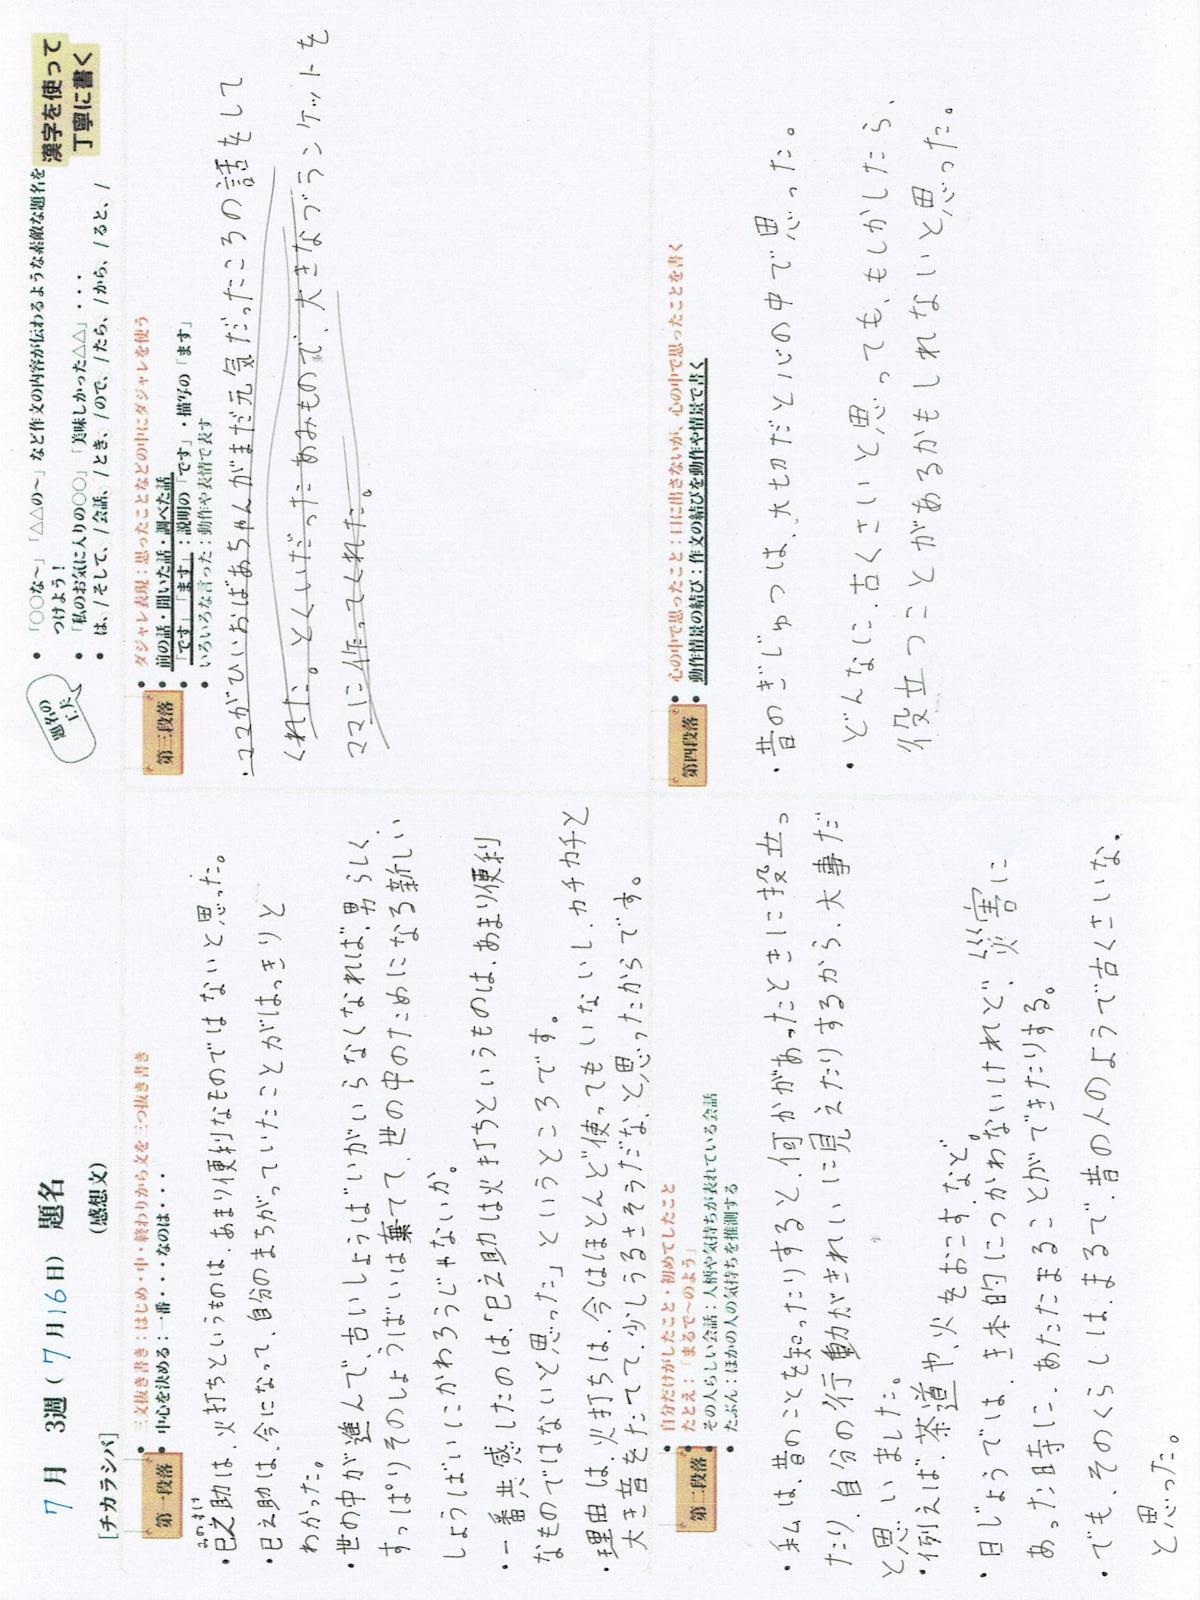 7月 3週(7月16日) 題名
[チカラシバ] (感想文)
題名の工夫
• 「○○な～」「△△の～」など作文の内容が伝わるような素敵な題名を
つけよう！
• 「私のお気に入りの○○」「美味しかった△△」・・・
• は、/そして、/会話、/とき、/ので、/たら、/から、/ると、/
漢字を使って
丁寧に書く
第一段落
• 三文抜き書き：はじめ・中・終わりから文を三つ抜き書き
• 中心を決める：一番・・・なのは・・・
みのすけ
・巳之助は、火打ちというものは、あまり便利なものではないと思った。
・巳之助は、今になって、自分のまちがっていたことがはっきりと
わかった。
・世の中が進んで、古いしょうばいがいらなくなれば、男らしく
すっぱりそのしょうばいは棄てて、世の中のためになる新しい
しょうばいにかわろうじゃないか。
・一番共感したのは、「巳之助は火打ちというものは、あまり便利
なものではないと思った」というところです。
・理由は、火打ちは、今はほとんど使ってもいないし、カチカチと
大き音をたてて、少しうるさそうだな、と思ったからです。
第二段落
• 自分だけがしたこと・初めてしたこと
• たとえ：「まるで～のよう」
• その人らしい会話：人柄や気持ちが表れている会話
• たぶん：ほかの人の気持ちを推測する
・私は、昔のことを知ったりすると、何かがあったときに投立っ
たり、自分の行動がきれいに見えたりするから、大事だ
と思いました。
・例えば、茶道や、火をおこす、など。
・日じょうでは、き本的につかわないけれど、災害に
あった時に、あたたまることができたりする。
・でも、そのくらしは、まるで、昔の人のようで古くさいな、
と思った。
第三段落
• ダジャレ表現：思ったことなどの中にダジャレを使う
• 前の話・聞いた話・調べた話
• 「です」「ます」：説明の「です」・描写の「ます」
• いろいろな言った：動作や表情で表す
・ママがひいおばあちゃんがまだ元気だったころの話をして
くれた。とくいだったあみもので、大きなブランケットを
ママに作ってくれた。
第四段落
• 心の中で思ったこと：口に出さないが、心の中で思ったことを書く
• 動作情景の結び：作文の結びを動作や情景で書く
・昔のぎじゅつは、大切だと心の中で思った。
・どんなに、古くさいと思っても、もしかしたら、
役立つことがあるかもしれないと思った。